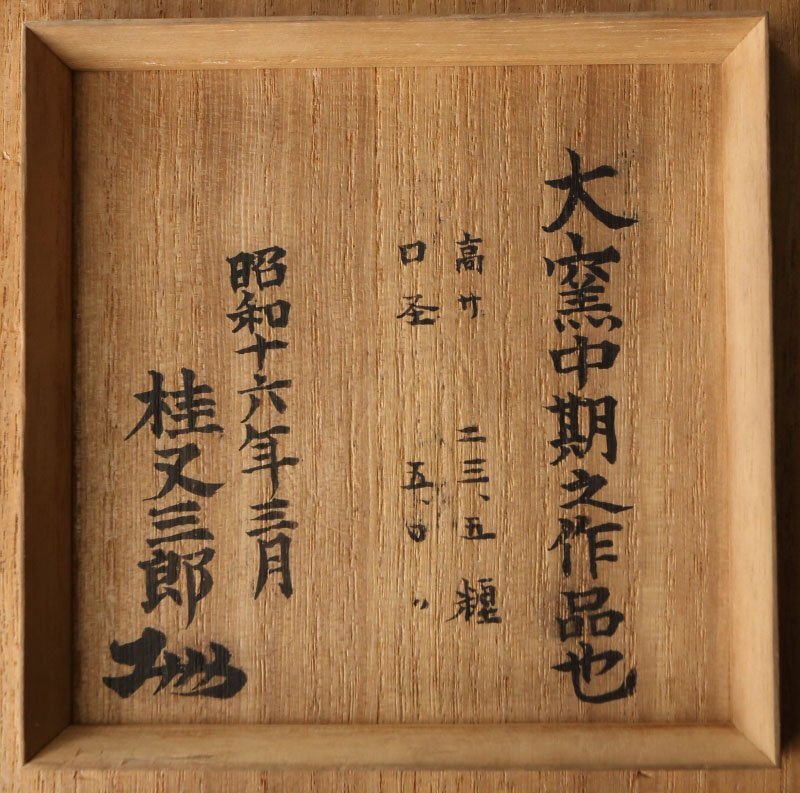 大窯中期之作品也
高サ 二三、五 糎
口圣 五、〇 〃
昭和十六年三月
桂又三郎